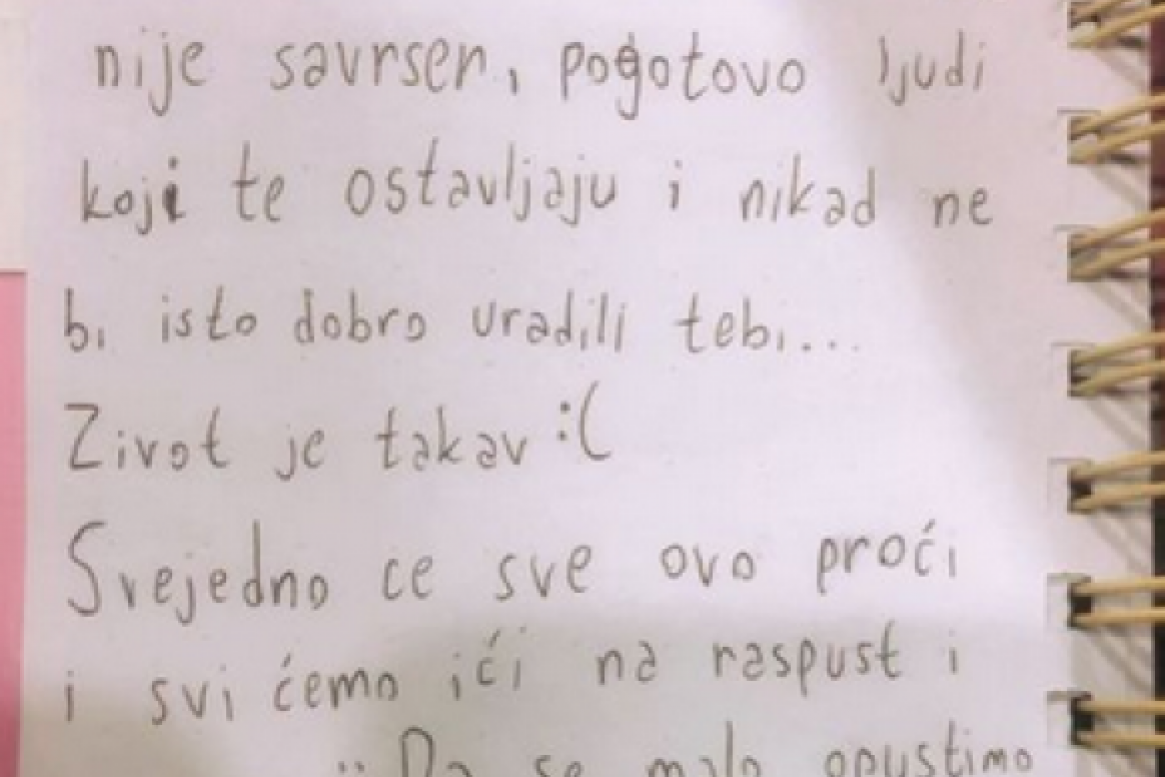 nije savrsen, pogotovo ljudi
koji te ostavljaju i nikad ne
bi isto dobro uradili tebi...
Zivot je takav :(
Svejedno ce sve ovo proći
i svi ćemo ići na raspust i
Da se malo opustimo